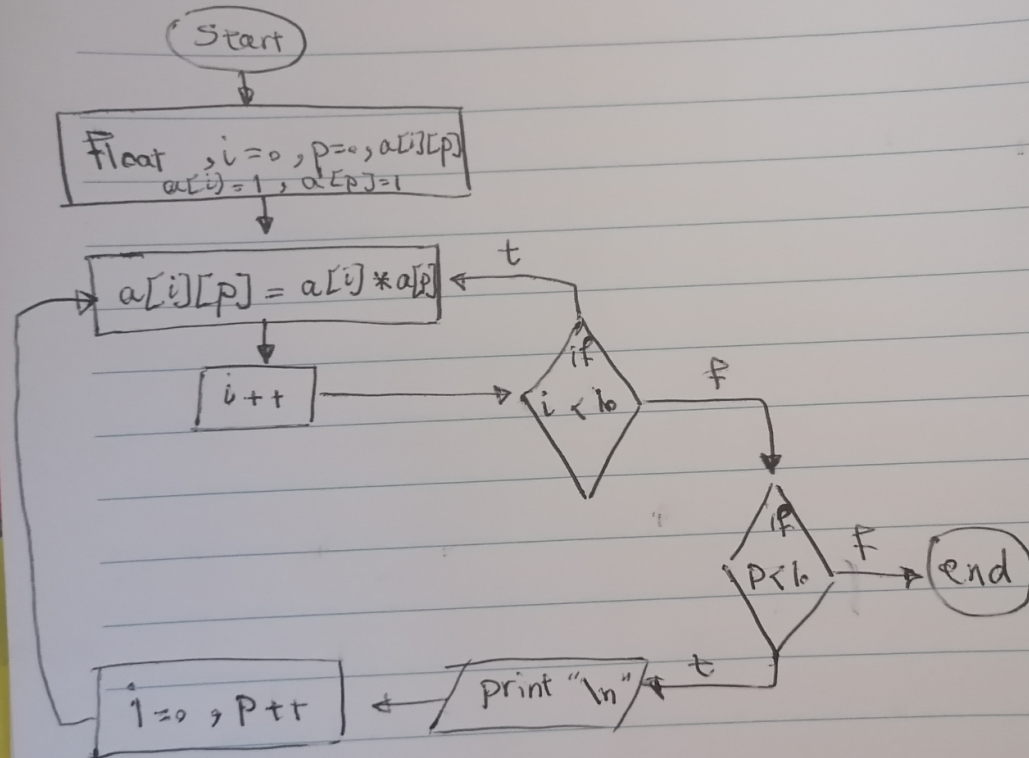 Start
Float , i=0, p=0, a[i][p]
a[i)=1, a[p]=1
a[i][p] = a[i]*a[p]
t
i++
if
i < 10
f
if
p<10
f
end
t
print "\n"
i=0, p++